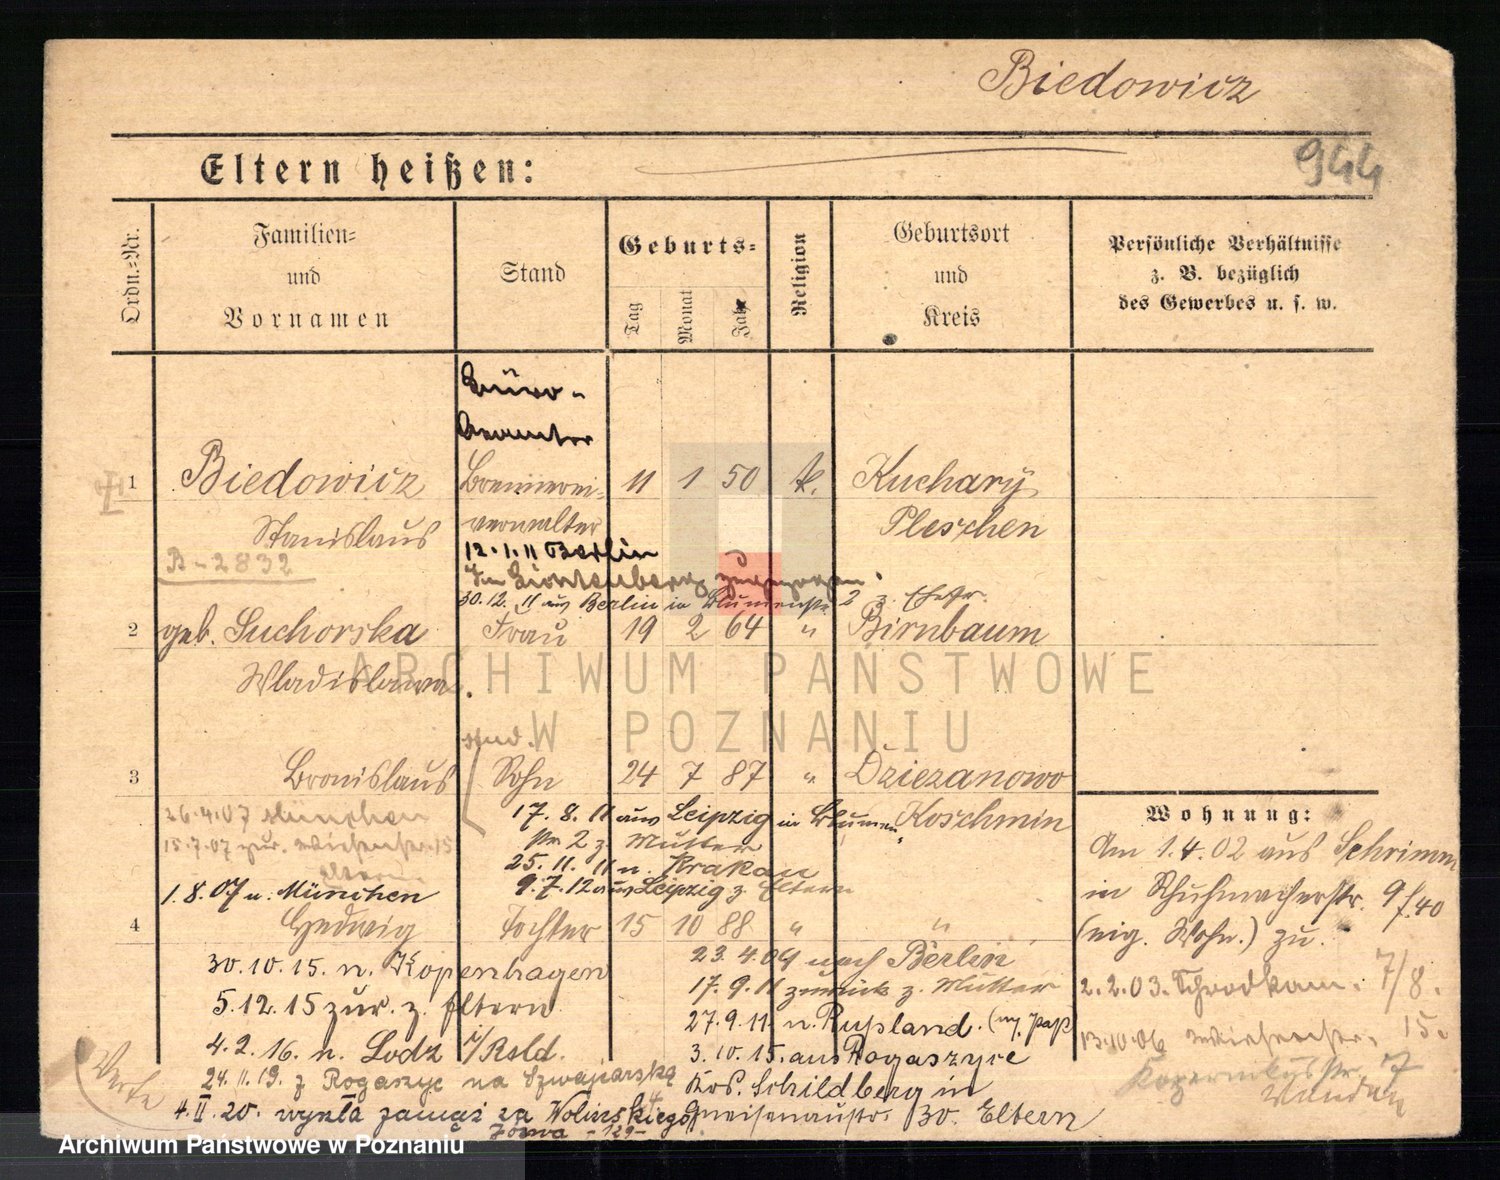 Biedowicz
944
Eltern heißen:
Ordn.=Nr.
Familien=
und
Vornamen
Stand
Geburts=
Tag
Monat
Jahr
Religion
Geburtsort
und
Kreis
Persönliche Verhältnisse
z. B. bezüglich
des Gewerbes u. s. w.
Büro-
beamter
1 Biedowicz Brennerei= 11 1 50 k. Kuchary
Stanislaus verwalter Pleschen
12.1.11 Berlin
R-2832
30.12.11 aus Berlin in Blumenstr. 2 z. Ehefr.
2 geb. Suchorska Frau 19 2 64 " Birnbaum
Wladislawa.
stud.
3 Bronislaus Sohn 24 7 87 " Dziezanowo
Koschmin
26.4.07 München
15.7.07 zur. Wiesenstr. 15
Eltern
1.8.07 n. München
17.8.11 aus Leipzig in Blumen-
str. 2 z. Mutter
25.11.11 n. Krakau
9.7.12 aus Leipzig z. Eltern
4 Hedwig Tochter 15 10 88 " "
23.4.09 nach Berlin
17.9.11 zurück z. Mutter
27.9.11. n. Rußland. (m. Paß
3.10.15. aus Rogaszyce
Krs. Schildberg in
Gneisenaustr. 30. Eltern
30.10.15. n. Kopenhagen
5.12.15 zur. z. Eltern
4.2.16. n. Lodz i/Rsld.
24.11.19. z Rogaszyc na Szwajcarską
4.II.20. wyszła zamąż za Wolinskiego
-129-
Wohnung:
Am 1.4.02 aus Schrimm
in Schuhmacherstr. 9
f. 40
(eig. Wohn.) zu.
2.2.03. 7/8.
13.10.06 Wiesenstr. 15.
Kopernikusstr. 7
Warta
ARCHIWUM PAŃSTWOWE
W POZNANIU
Archiwum Państwowe w Poznaniu